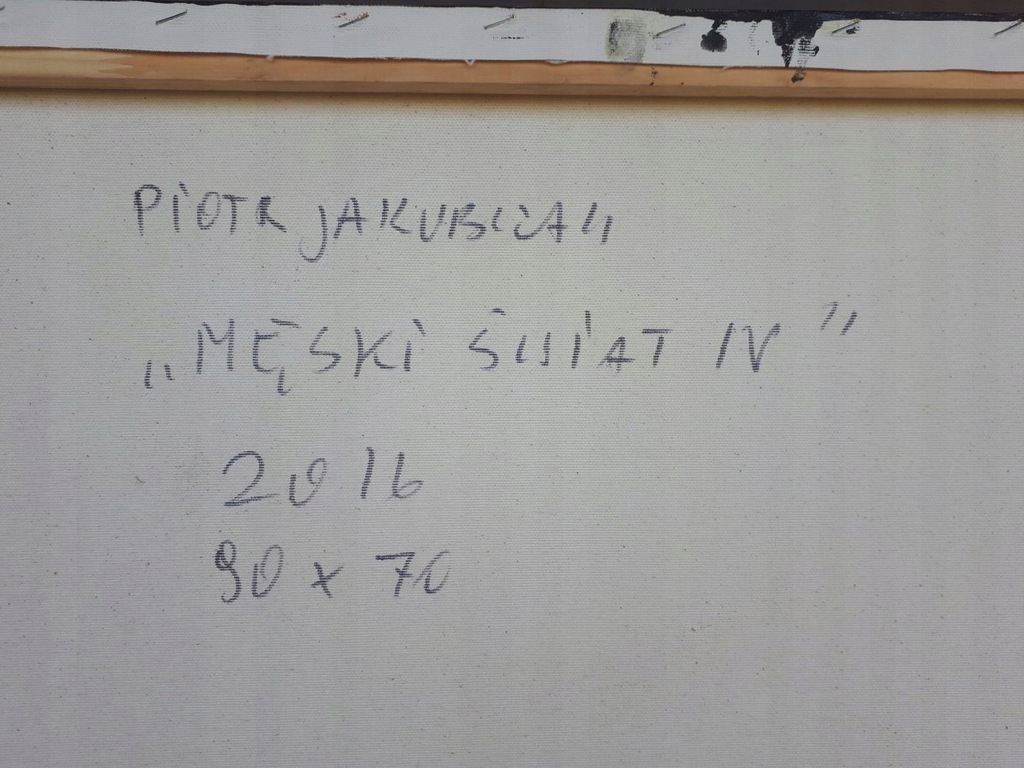 PIOTR JAKUBCZAK
„MĘSKI ŚWIAT IV”
2016
90 x 70